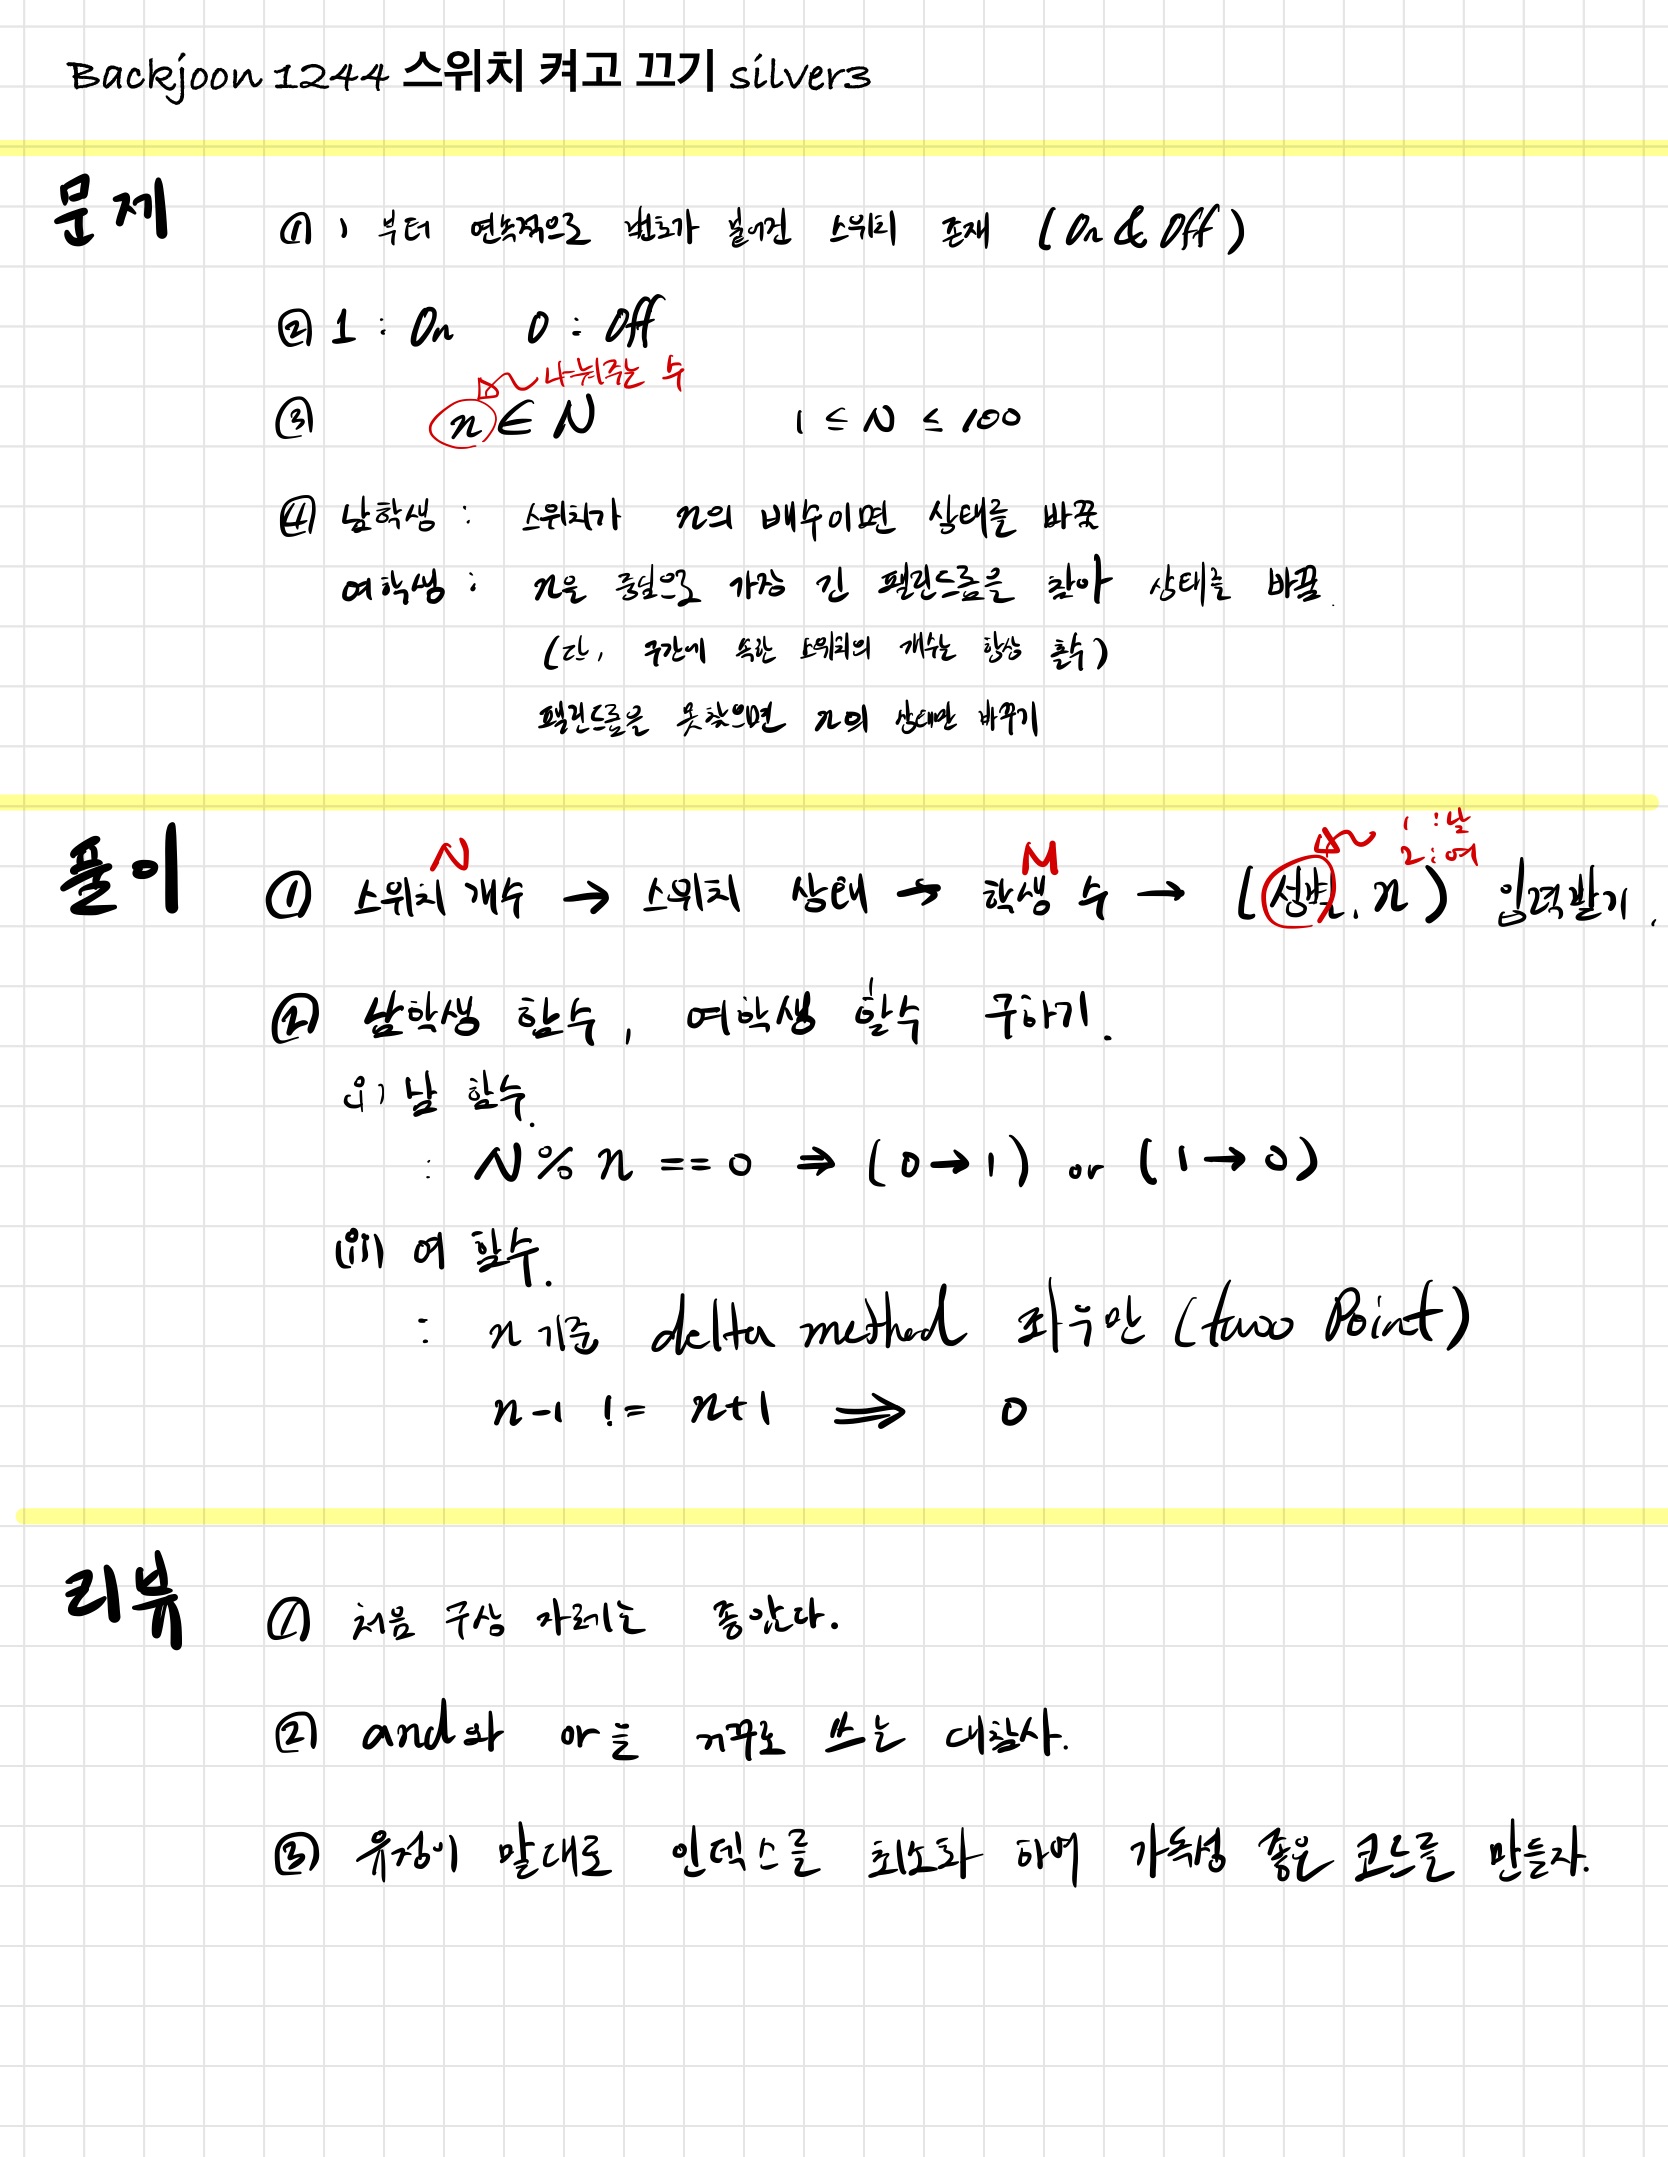 Backjoon 1244 스위치 켜고 끄기 silver3
문제
① 1 부터 연속적으로 번호가 붙어진 스위치 존재 (On & Off)
② 1 : On 0 : Off
나눠주는 수
③ n ∈ N 1 ≤ N ≤ 100
④ 남학생 : 스위치가 n의 배수이면 상태를 바꿈
여학생 : n을 중심으로 가장 긴 팰린드롬을 찾아 상태를 바꿈.
(단, 구간에 속한 스위치의 개수는 항상 홀수)
팰린드롬을 못찾으면 n의 상태만 바꾸기
풀이
N M 1 : 남
2 : 여
① 스위치 개수 → 스위치 상태 → 학생 수 → (성별, n) 입력받기.
② 남학생 함수, 여학생 함수 구하기.
(i) 남 함수.
: N % n == 0 ⇒ (0 → 1) or (1 → 0)
(ii) 여 함수.
: n 기준 delta method 좌우만 (two Point)
n-1 != n+1 ⟹ 0
리뷰
① 처음 구상 자체는 좋았다.
② and와 or를 거꾸로 쓰는 대참사.
③ 유정이 말대로 인덱스를 최소화 하여 가독성 좋은 코드를 만들자.